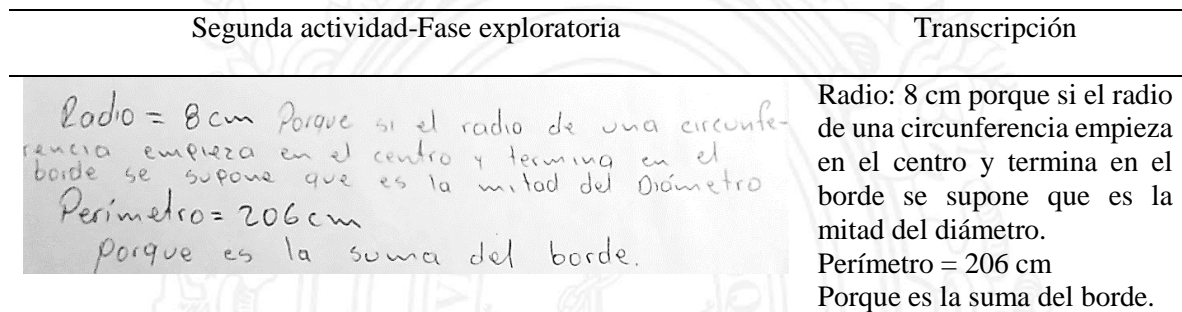 Segunda actividad-Fase exploratoria
Transcripción
Radio = 8 cm Porque si el radio de una circunfe-
rencia empieza en el centro y termina en el
borde se supone que es la mitad del Diámetro
Perímetro = 206 cm
porque es la suma del borde.
Radio: 8 cm porque si el radio
de una circunferencia empieza
en el centro y termina en el
borde se supone que es la
mitad del diámetro.
Perímetro = 206 cm
Porque es la suma del borde.